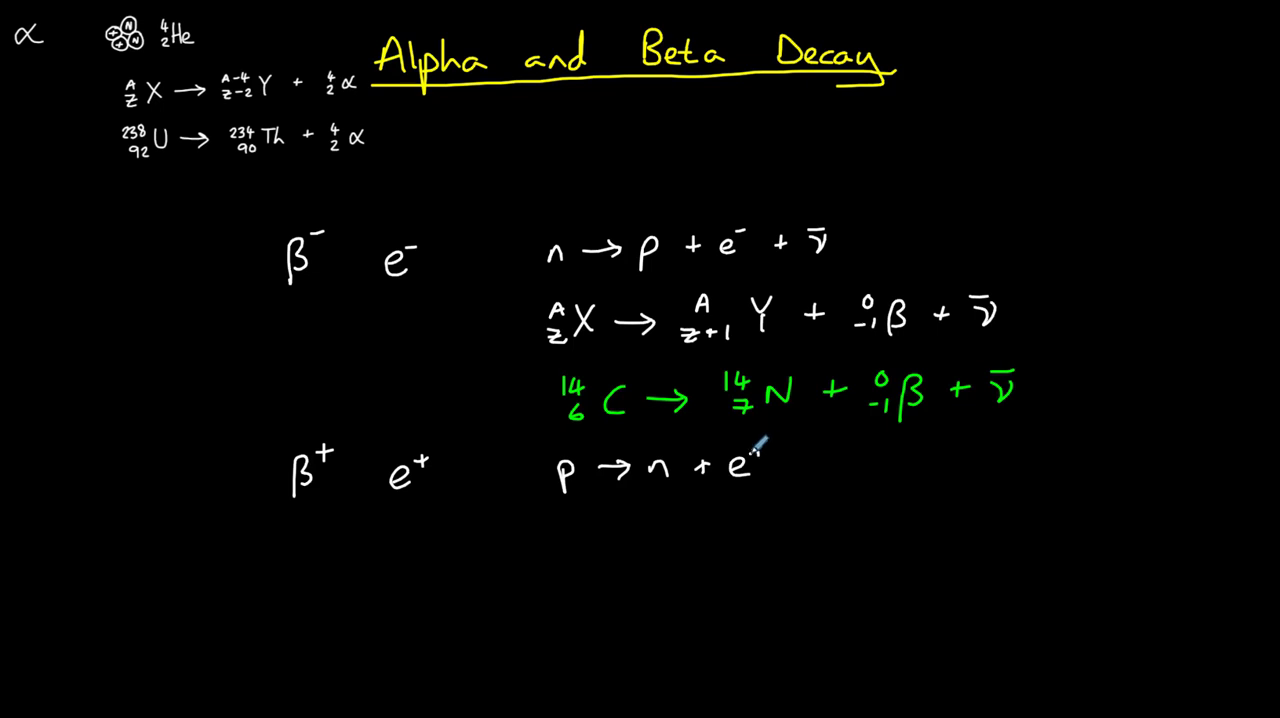 Alpha and Beta Decay
α ++NN ⁴₂He
ᴬ_Z X → ᴬ⁻⁴_Z₋₂ Y + ⁴₂α
²³⁸₉₂U → ²³⁴₉₀Th + ⁴₂α
β⁻ e⁻ n → p + e⁻ + ν̅
ᴬ_Z X → ᴬ_Z₊₁ Y + ⁰₋₁β + ν̅
¹⁴₆C → ¹⁴₇N + ⁰₋₁β + ν̅
β⁺ e⁺ p → n + e⁺